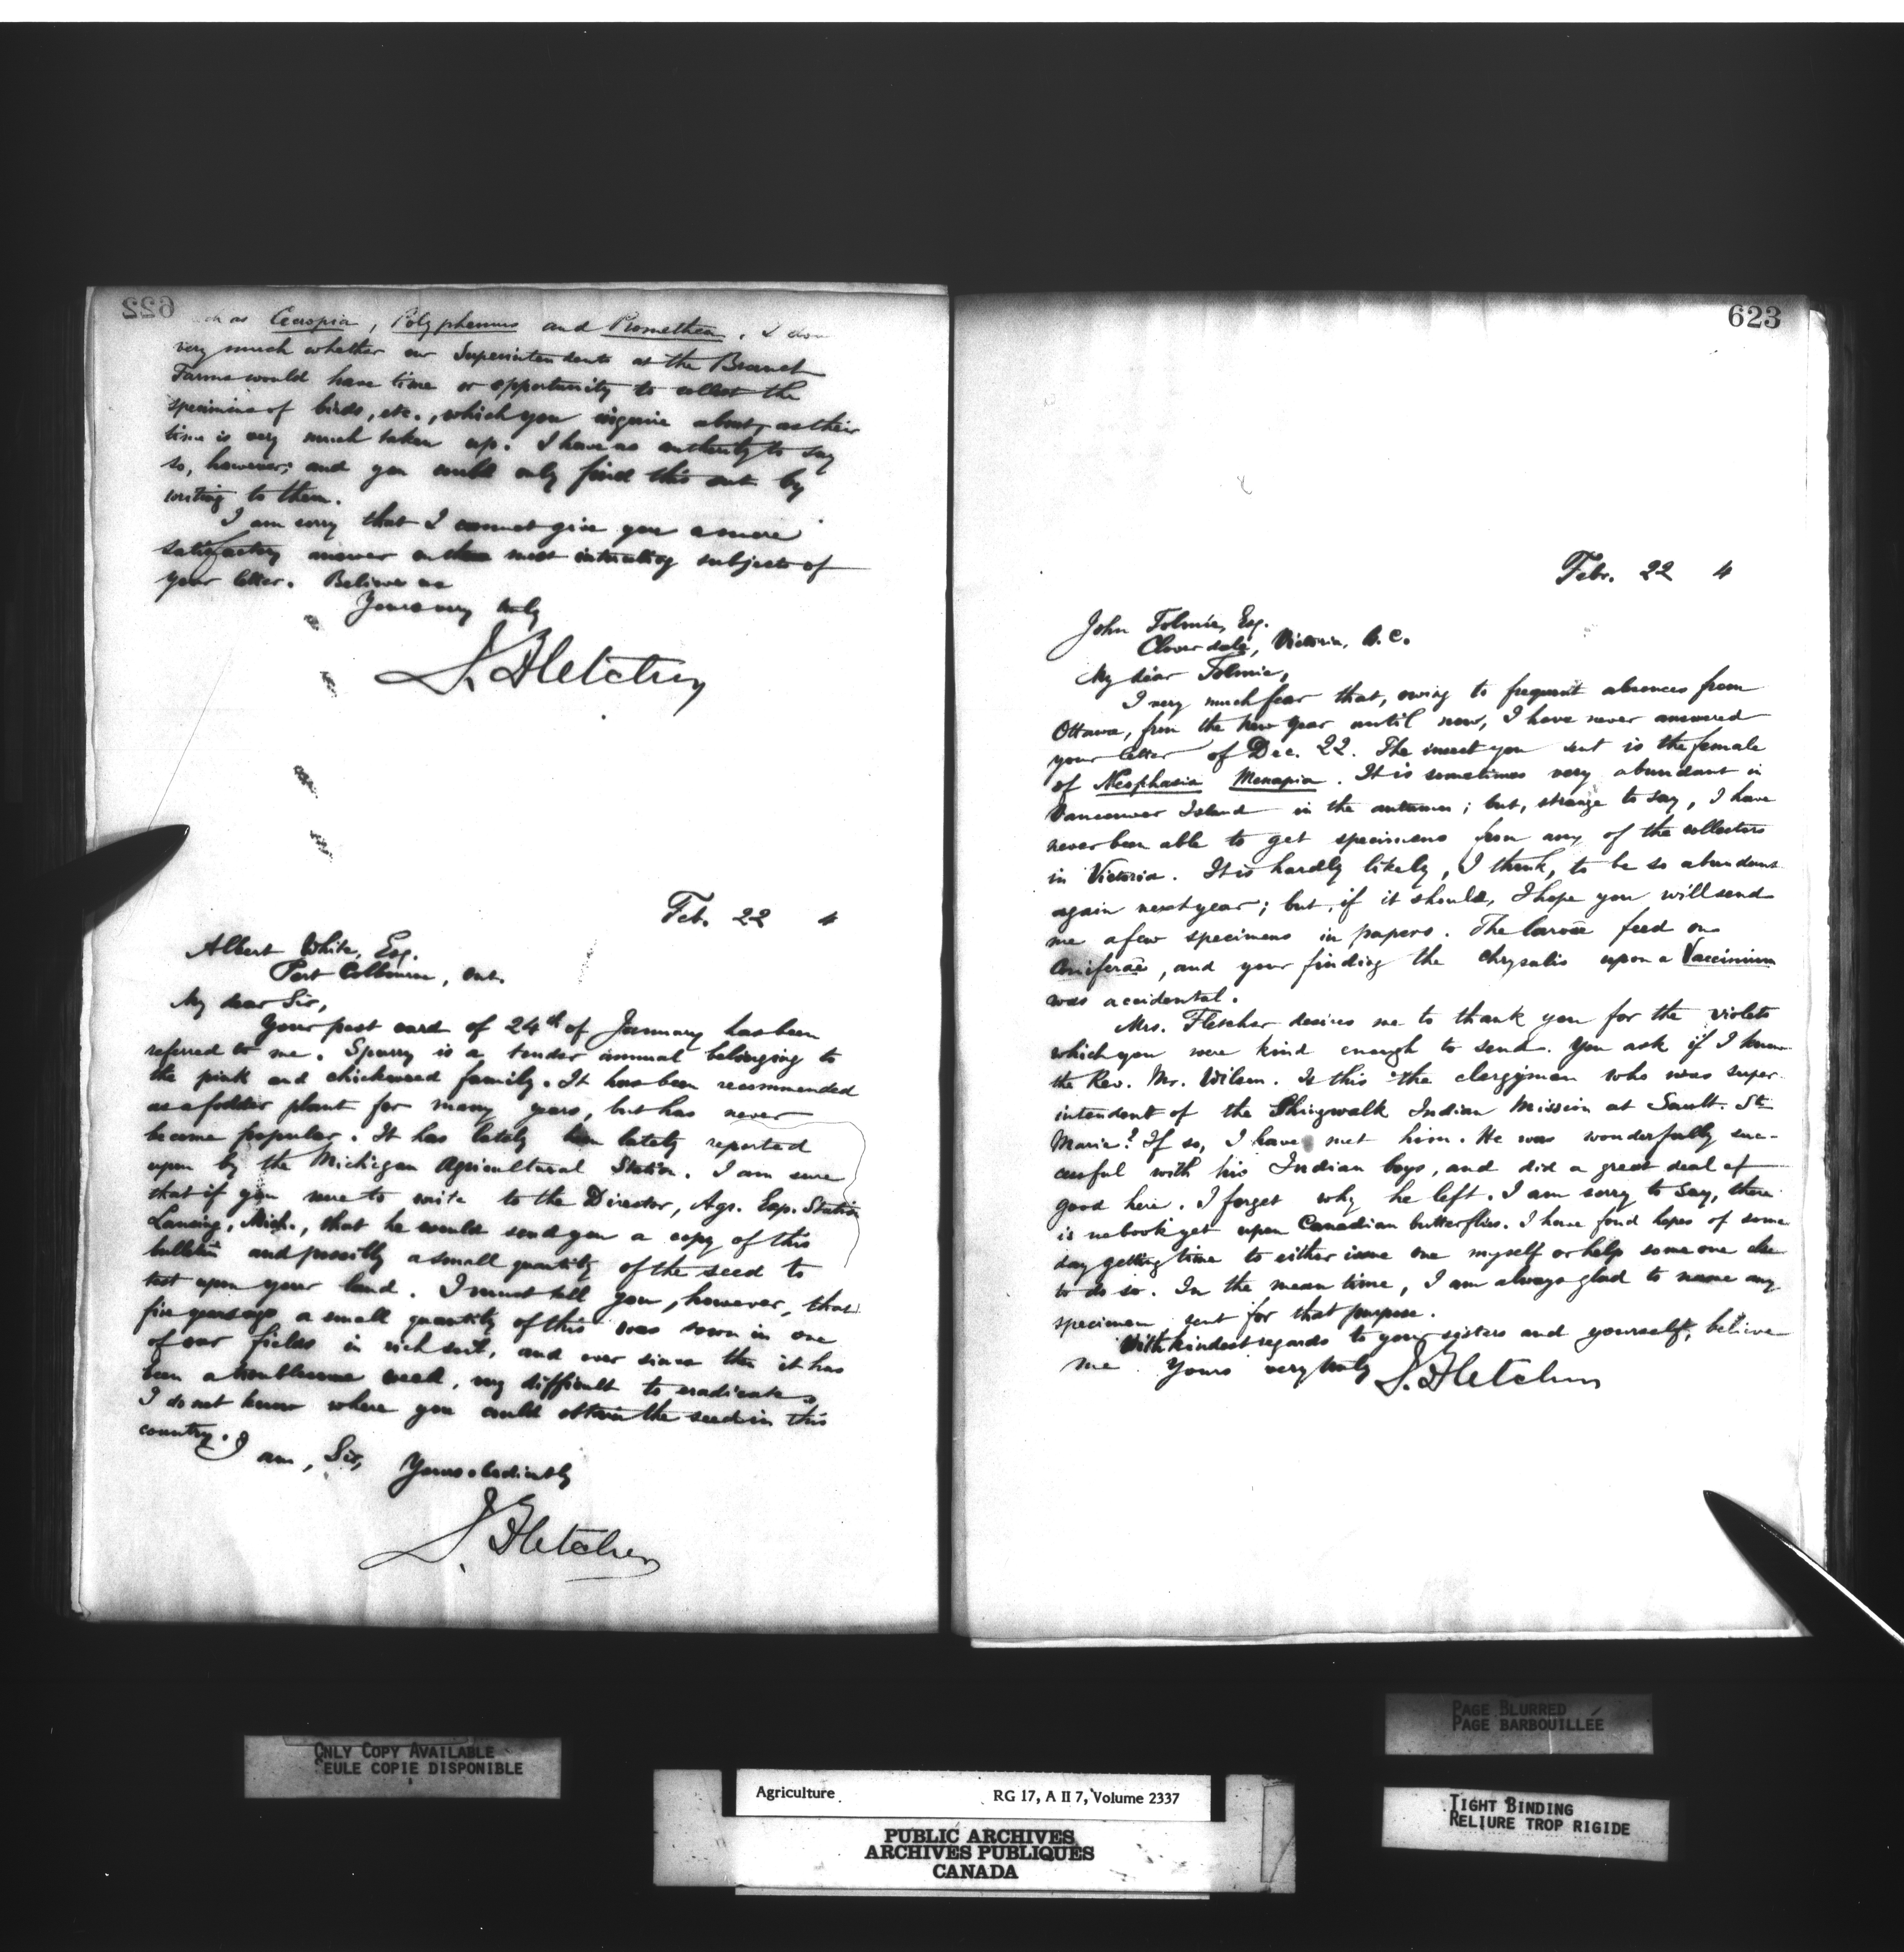 622
as Cecropia, Polyphemus and Promethea. I
very much whether our Superintendents at the Branch
Farms would have time or opportunity to collect the
specimens of birds, etc., which you inquire about, as their
time is very much taken up. I have no authority to say
so, however; and you could only find this out by
writing to them.
I am sorry that I cannot give you a more
satisfactory answer on the most interesting subjects of
your letter. Believe me
Yours very truly
J. Fletcher
Feb. 22 4
Albert White, Esq.
Port Colbourne, Ont.
My dear Sir,
Your post card of 24th of January has been
referred to me. Spurry is a tender annual belonging to
the pink and chickweed family. It has been recommended
as a fodder plant for many years, but has never
become popular. It has lately been lately reported
upon by the Michigan Agricultural Station. I am sure
that if you were to write to the Director, Agr. Exp. Station
Lansing, Mich., that he would send you a copy of this
bulletin and possibly a small quantity of the seed to
test upon your land. I must tell you, however, that
five years ago a small quantity of this was sown in one
of our fields in rich soil, and ever since then it has
been a troublesome weed, very difficult to eradicate.
I do not know where you could obtain the seed in this
country. I am, Sir,
Yours obediently
J. Fletcher
623
Febr. 22 4
John Tolmie, Esq.
Cloverdale, Victoria, B.C.
My dear Tolmie,
I very much fear that, owing to frequent absences from
Ottawa, from the New Year until now, I have never answered
your letter of Dec. 22. The insect you sent is the female
of Neophasia Menapia. It is sometimes very abundant in
Vancouver Island in the autumn; but, strange to say, I have
never been able to get specimens from any of the collectors
in Victoria. It is hardly likely, I think, to be so abundant
again next year; but, if it should, I hope you will send
me a few specimens in papers. The larvae feed on
Coniferae, and your finding the chrysalis upon a Vaccinium
was accidental.
Mrs. Fletcher desires me to thank you for the violets
which you were kind enough to send. You ask if I know
the Rev. Mr. Wilson. Is this the clergyman who was super-
intendent of the Shingwalk Indian Mission at Sault. Ste
Marie? If so, I have met him. He was wonderfully suc-
cessful with his Indian boys, and did a great deal of
good here. I forget why he left. I am sorry to say, there
is no book yet upon Canadian butterflies. I have fond hopes of some
day getting time to either issue one myself or help some one else
to do so. In the mean time, I am always glad to name any
specimen sent for that purpose.
With kindest regards to your sisters and yourself, believe
me Yours very truly J. Fletcher
ONLY COPY AVAILABLE
SEULE COPIE DISPONIBLE
PAGE BLURRED
PAGE BARBOUILLÉE
TIGHT BINDING
RELIURE TROP RIGIDE
Agriculture RG 17, A II 7, Volume 2337
PUBLIC ARCHIVES
ARCHIVES PUBLIQUES
CANADA